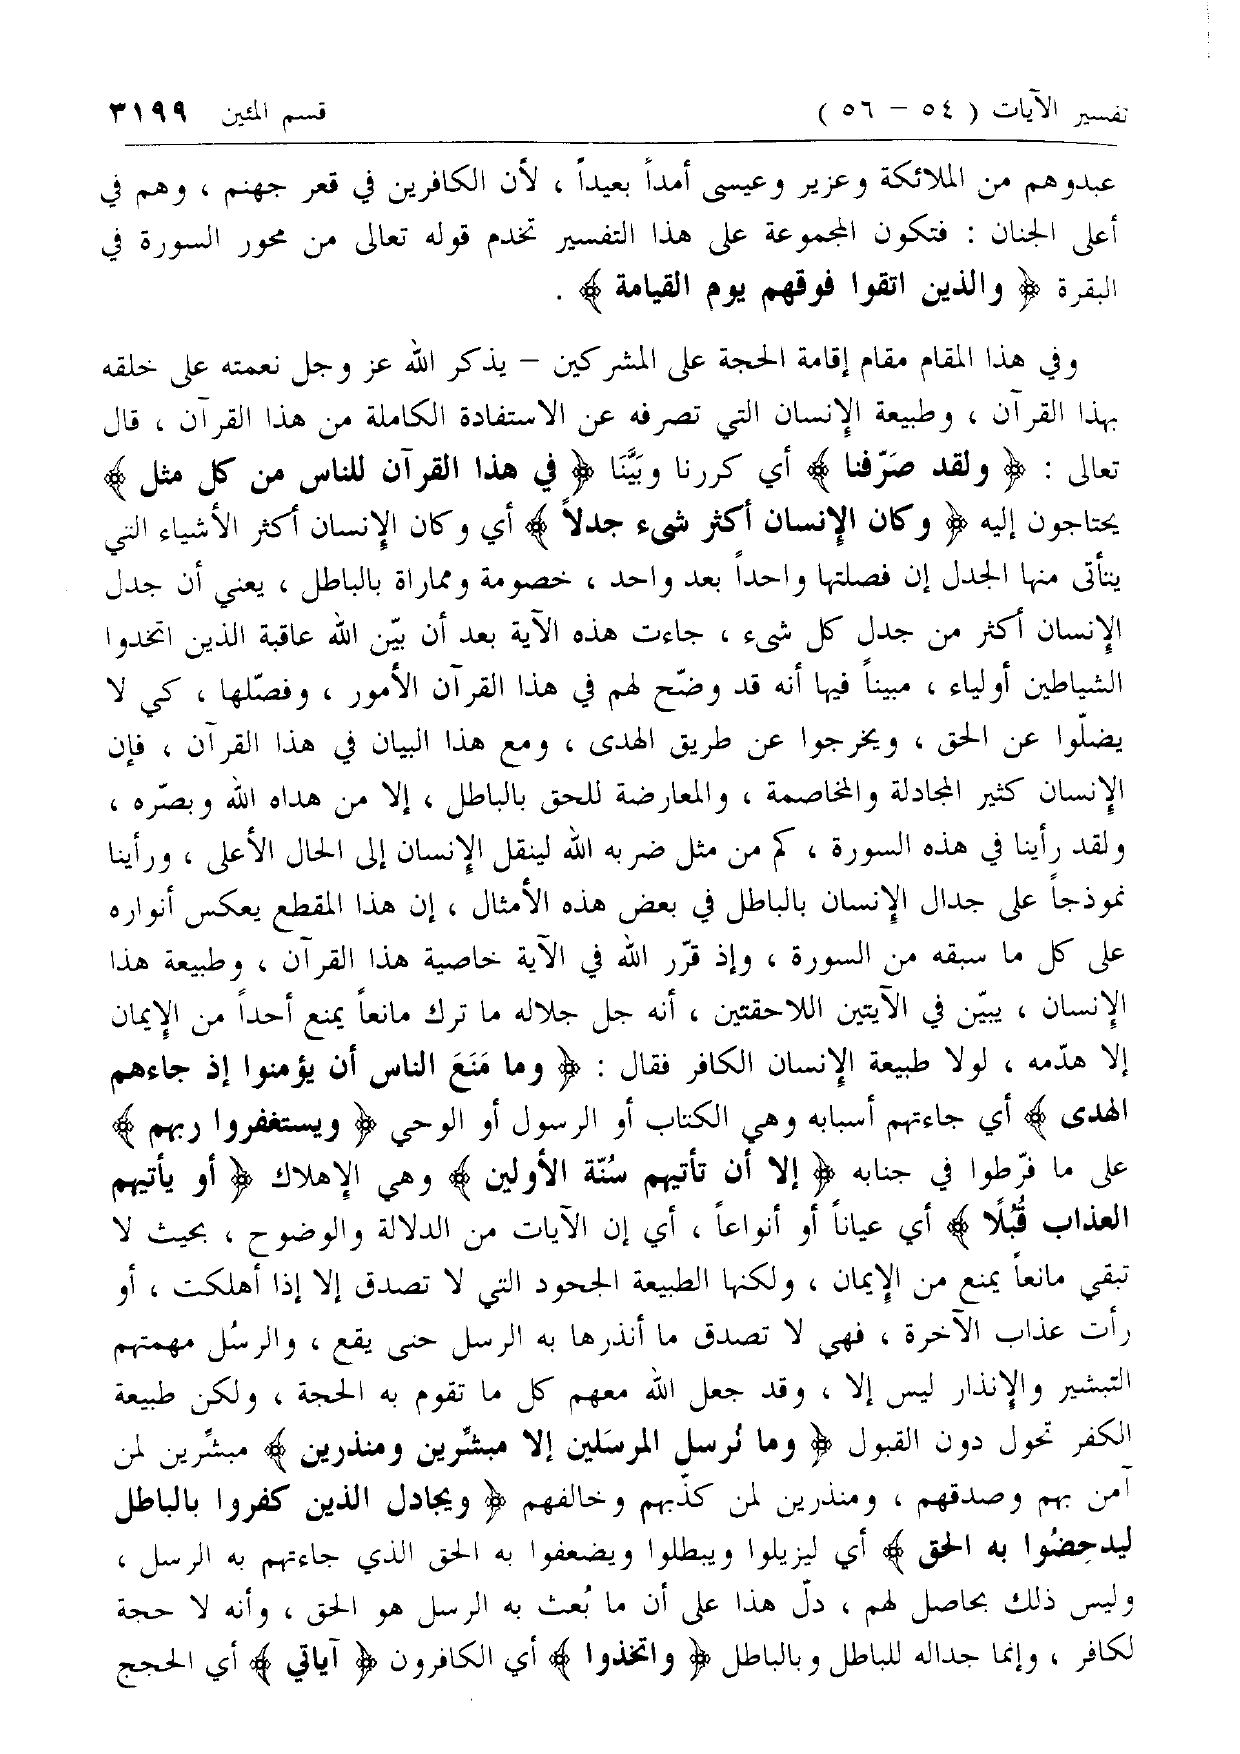 تفسير الآيات ( ٥٤ – ٥٦ ) قسم المئين ٣١٩٩
عبدوهم من الملائكة وعزير وعيسى أمداً بعيداً ، لأن الكافرين في قعر جهنم ، وهم في
أعلى الجنان : فتكون المجموعة على هذا التفسير تخدم قوله تعالى من محور السورة في
البقرة ﴿ والذين اتقوا فوقهم يوم القيامة ﴾ .
وفي هذا المقام مقام إقامة الحجة على المشركين – يذكر الله عز وجل نعمته على خلقه
بهذا القرآن ، وطبيعة الإنسان التي تصرفه عن الاستفادة الكاملة من هذا القرآن ، قال
تعالى : ﴿ ولقد صَرّفنا ﴾ أي كررنا وبَيَّنَا ﴿ في هذا القرآن للناس من كل مثل ﴾
يحتاجون إليه ﴿ وكان الإنسان أكثر شيء جدلاً ﴾ أي وكان الإنسان أكثر الأشياء التي
يتأتى منها الجدل إن فصلتها واحداً بعد واحد ، خصومة ومماراة بالباطل ، يعني أن جدل
الإنسان أكثر من جدل كل شيء ، جاءت هذه الآية بعد أن بيّن الله عاقبة الذين اتخدوا
الشياطين أولياء ، مبيناً فيها أنه قد وضّح لهم في هذا القرآن الأمور ، وفصّلها ، كي لا
يضلّوا عن الحق ، ويخرجوا عن طريق الهدى ، ومع هذا البيان في هذا القرآن ، فإن
الإنسان كثير المجادلة والمخاصمة ، والمعارضة للحق بالباطل ، إلا من هداه الله وبصّره ،
ولقد رأينا في هذه السورة ، كم من مثل ضربه الله لينقل الإنسان إلى الحال الأعلى ، ورأينا
نموذجاً على جدال الإنسان بالباطل في بعض هذه الأمثال ، إن هذا المقطع يعكس أنواره
على كل ما سبقه من السورة ، وإذ قرّر الله في الآية خاصية هذا القرآن ، وطبيعة هذا
الإنسان ، يبيّن في الآيتين اللاحقتين ، أنه جل جلاله ما ترك مانعاً يمنع أحداً من الإيمان
إلا هدّمه ، لولا طبيعة الإنسان الكافر فقال : ﴿ وما مَنَعَ الناس أن يؤمنوا إذ جاءهم
الهدى ﴾ أي جاءتهم أسبابه وهي الكتاب أو الرسول أو الوحي ﴿ ويستغفروا ربهم ﴾
على ما فرّطوا في جنابه ﴿ إلا أن تأتيهم سُنّة الأولين ﴾ وهي الإهلاك ﴿ أو يأتيهم
العذاب قُبُلًا ﴾ أي عياناً أو أنواعاً ، أي إن الآيات من الدلالة والوضوح ، بحيث لا
تبقي مانعاً يمنع من الإيمان ، ولكنها الطبيعة الجحود التي لا تصدق إلا إذا أهلكت ، أو
رأت عذاب الآخرة ، فهي لا تصدق ما أنذرها به الرسل حتى يقع ، والرسُل مهمتهم
التبشير والإنذار ليس إلا ، وقد جعل الله معهم كل ما تقوم به الحجة ، ولكن طبيعة
الكفر تحول دون القبول ﴿ وما نُرسل المرسَلين إلا مبشّرين ومنذرين ﴾ مبشّرين لمن
آمن بهم وصدقهم ، ومنذرين لمن كذّبهم وخالفهم ﴿ ويجادل الذين كفروا بالباطل
ليدحِضُوا به الحق ﴾ أي ليزيلوا ويبطلوا ويضعفوا به الحق الذي جاءتهم به الرسل ،
وليس ذلك بحاصل لهم ، دلّ هذا على أن ما بُعث به الرسل هو الحق ، وأنه لا حجة
لكافر ، وإنما جداله للباطل وبالباطل ﴿ واتخذوا ﴾ أي الكافرون ﴿ آياتي ﴾ أي الحجج